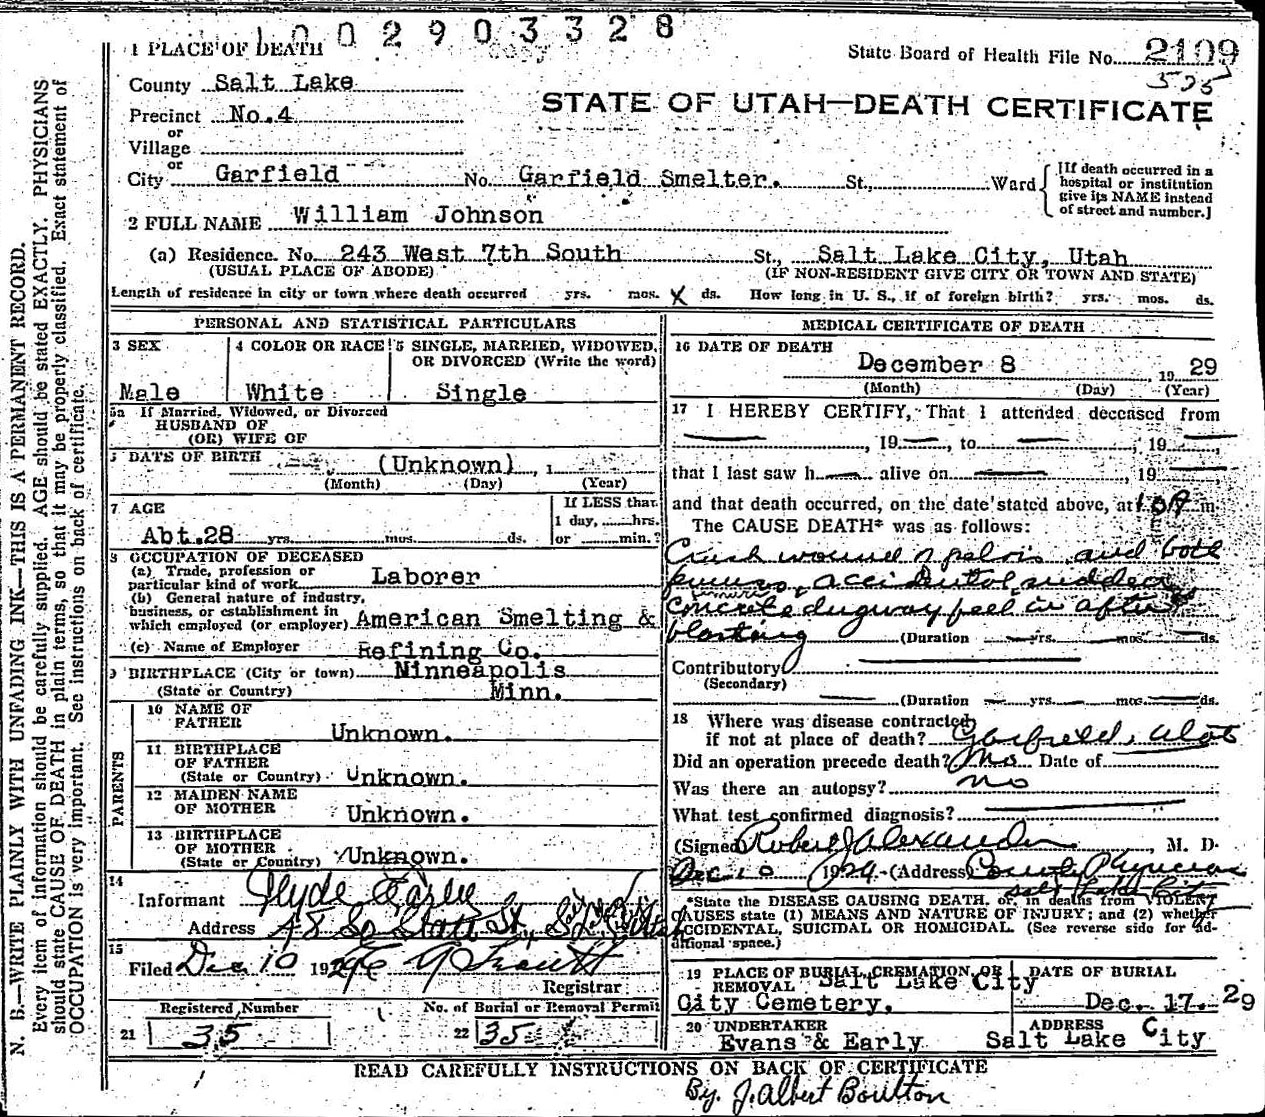 1 0 0 2 9 0 3 3 2 8
1 PLACE OF DEATH
copy
State Board of Health File No. 2109
525
County Salt Lake
STATE OF UTAH—DEATH CERTIFICATE
Precinct No.4
or
Village
or
City Garfield No. Garfield Smelter. St., Ward
[If death occurred in a hospital or institution give its NAME instead of street and number.]
2 FULL NAME William Johnson
(a) Residence. No. 243 West 7th South St., Salt Lake City, Utah
(USUAL PLACE OF ABODE) (IF NON-RESIDENT GIVE CITY OR TOWN AND STATE)
Length of residence in city or town where death occurred yrs. mos. X ds. How long in U. S., if of foreign birth? yrs. mos. ds.
PERSONAL AND STATISTICAL PARTICULARS
3 SEX
Male
4 COLOR OR RACE
White
5 SINGLE, MARRIED, WIDOWED,
OR DIVORCED (Write the word)
Single
5a If Married, Widowed, or Divorced
HUSBAND OF
(OR) WIFE OF
DATE OF BIRTH (Unknown) , 1
(Month) (Day) (Year)
7 AGE
Abt.28 yrs. mos. ds.
If LESS than
1 day, hrs.
or min.?
8 OCCUPATION OF DECEASED
(a) Trade, profession or
particular kind of work Laborer
(b) General nature of industry,
business, or establishment in
which employed (or employer) American Smelting &
(c) Name of Employer Refining Co.
9 BIRTHPLACE (City or town) Minneapolis
(State or Country) Minn.
PARENTS
10 NAME OF
FATHER Unknown.
11 BIRTHPLACE
OF FATHER
(State or Country) Unknown.
12 MAIDEN NAME
OF MOTHER Unknown.
13 BIRTHPLACE
OF MOTHER
(State or Country) Unknown.
14
Informant Clyde Early
Address 48 So State St.,
15
Filed Dec 10 1929
Registrar
Registered Number
21 35
No. of Burial or Removal Permit
22 35
MEDICAL CERTIFICATE OF DEATH
16 DATE OF DEATH
December 8 , 19 29
(Month) (Day) (Year)
17 I HEREBY CERTIFY, That I attended deceased from
, 19 , to , 19
that I last saw h alive on , 19
and that death occurred, on the date stated above, at m.
The CAUSE DEATH* was as follows:
Crush wound of pelvis and both
femurs, accidental, sudden
femurs
concrete dugway feel in after
blasting (Duration yrs. mos. ds.
Contributory
(Secondary)
(Duration yrs. mos. ds.
18 Where was disease contracted
if not at place of death? Garfield, Utah
Did an operation precede death? No Date of
Was there an autopsy? no
What test confirmed diagnosis?
(Signed Robert J Alexander , M. D.
Dec 10 1929 (Address) County Physician
Salt Lake City
*State the DISEASE CAUSING DEATH, or, in deaths from VIOLENT
CAUSES state (1) MEANS AND NATURE OF INJURY; and (2) whether
ACCIDENTAL, SUICIDAL OR HOMICIDAL. (See reverse side for ad-
ditional space.)
19 PLACE OF BURIAL, CREMATION, OR
REMOVAL Salt Lake City
City Cemetery.
DATE OF BURIAL
Dec. 17. 29
20 UNDERTAKER
Evans & Early
ADDRESS
Salt Lake City
READ CAREFULLY INSTRUCTIONS ON BACK OF CERTIFICATE
By. J. Albert Boulton
N. B.—WRITE PLAINLY WITH UNFADING INK—THIS IS A PERMANENT RECORD.
Every item of information should be carefully supplied. AGE should be stated EXACTLY. PHYSICIANS
should state CAUSE OF DEATH in plain terms, so that it may be properly classified. Exact statement of
OCCUPATION is very important. See instructions on back of certificate.